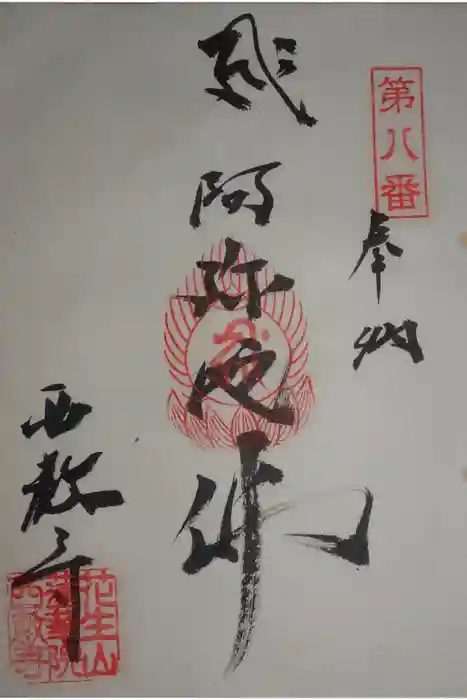 第八番
奉納
阿弥陀佛
西教寺
花生山
西教寺